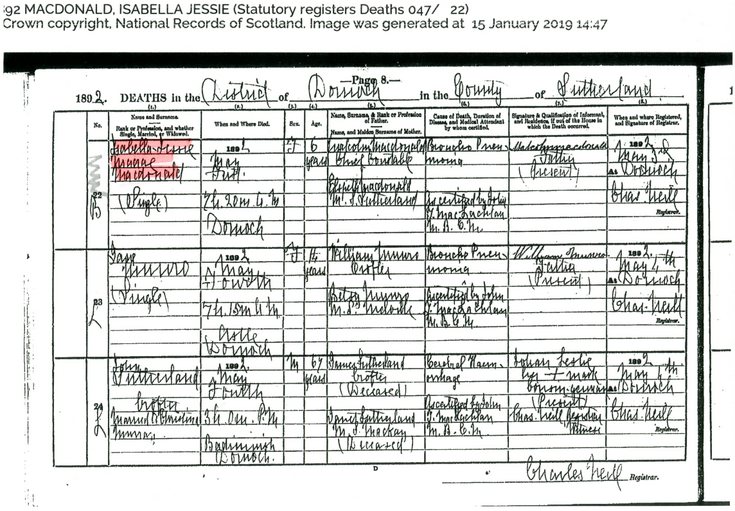 92 MACDONALD, ISABELLA JESSIE (Statutory registers Deaths 047/ 22)
Crown copyright, National Records of Scotland. Image was generated at 15 January 2019 14:47
—Page 8.—
1892. DEATHS in the District of Dornoch in the County of Sutherland.
(1.) (2.) (3.) (4.) (5.) (6.) (7.) (8.)
No.
Name and Surname.
Rank or Profession, and whether Single, Married, or Widowed.
When and Where Died.
Sex.
Age.
Name, Surname, & Rank or Profession of Father.
Name, and Maiden Surname of Mother.
Cause of Death, Duration of Disease, and Medical Attendant by whom certified.
Signature & Qualification of Informant, and Residence, if out of the House in which the Death occurred.
When and where Registered, and Signature of Registrar.
22
Isabella Jessie
Macdonald
(Single)
1892
May
7h. 20m. A.M.
Dornoch
F
6
years
Malcolm Macdonald
Chief Constable
Macdonald
M.S. Sutherland
Broncho Pneu-
monia
As certified by John
J. MacLachlan
M.B.C.M.
Malcolm Macdonald
Father
(Present)
1892
May
At Dornoch
Chas. Neill
Registrar.
23
Munro
(Single)
1892
May
Fourth
7h. 15m. A.M.
Dornoch
F
14
years
William Munro
Crofter
Betsy Munro
Broncho Pneu-
monia
As certified by John
J. MacLachlan
M.B.C.M.
William Munro
Father
(Present)
1892
May 4th
At Dornoch
Chas. Neill
Registrar.
24
John
Sutherland
Crofter
Married to Christina
Murray
1892
May
Fourth
3h. 0m. P.M.
Dornoch
M
67
years
James Sutherland
Crofter
(Deceased)
Janet Sutherland
M.S. Mackay
(Deceased)
Cerebral Haem-
orrhage
As certified by John
J. MacLachlan
M.B.C.M.
Johan Leslie
her + mark
(Present)
Chas. Neill Registrar
Witness
1892
May
At Dornoch
Chas. Neill
Registrar.
D
Charles Neill Registrar.